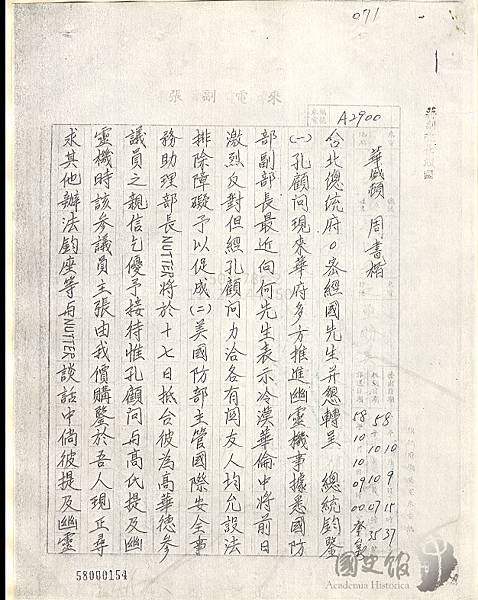 071
來電副張
A2900
華盛頓 周書楷
58年10月9日15時37分
58年10月10日07時35分
58年10月10日09時00分
台北總統府○密經國先生并懇轉呈 總統鈞鑒
(一)孔顧問現來華府多方推進幽靈機事據悉國防
部副部長最近向何先生表示冷漠華倫中將前日
激烈反對但經孔顧問力洽各有關友人均允設法
排除障礙予以促成(二)美國防部主管國際安全事
務助理部長NUTTER將於十七日抵台彼為高華德參
議員之親信乞優予接待惟孔顧問與高氏提及幽
靈機時該參議員主張由我價購鑒於吾人現正尋
求其他辦法鈞座等與NUTTER談話中倘彼提及幽靈
58000154
國史館
Academia Historica